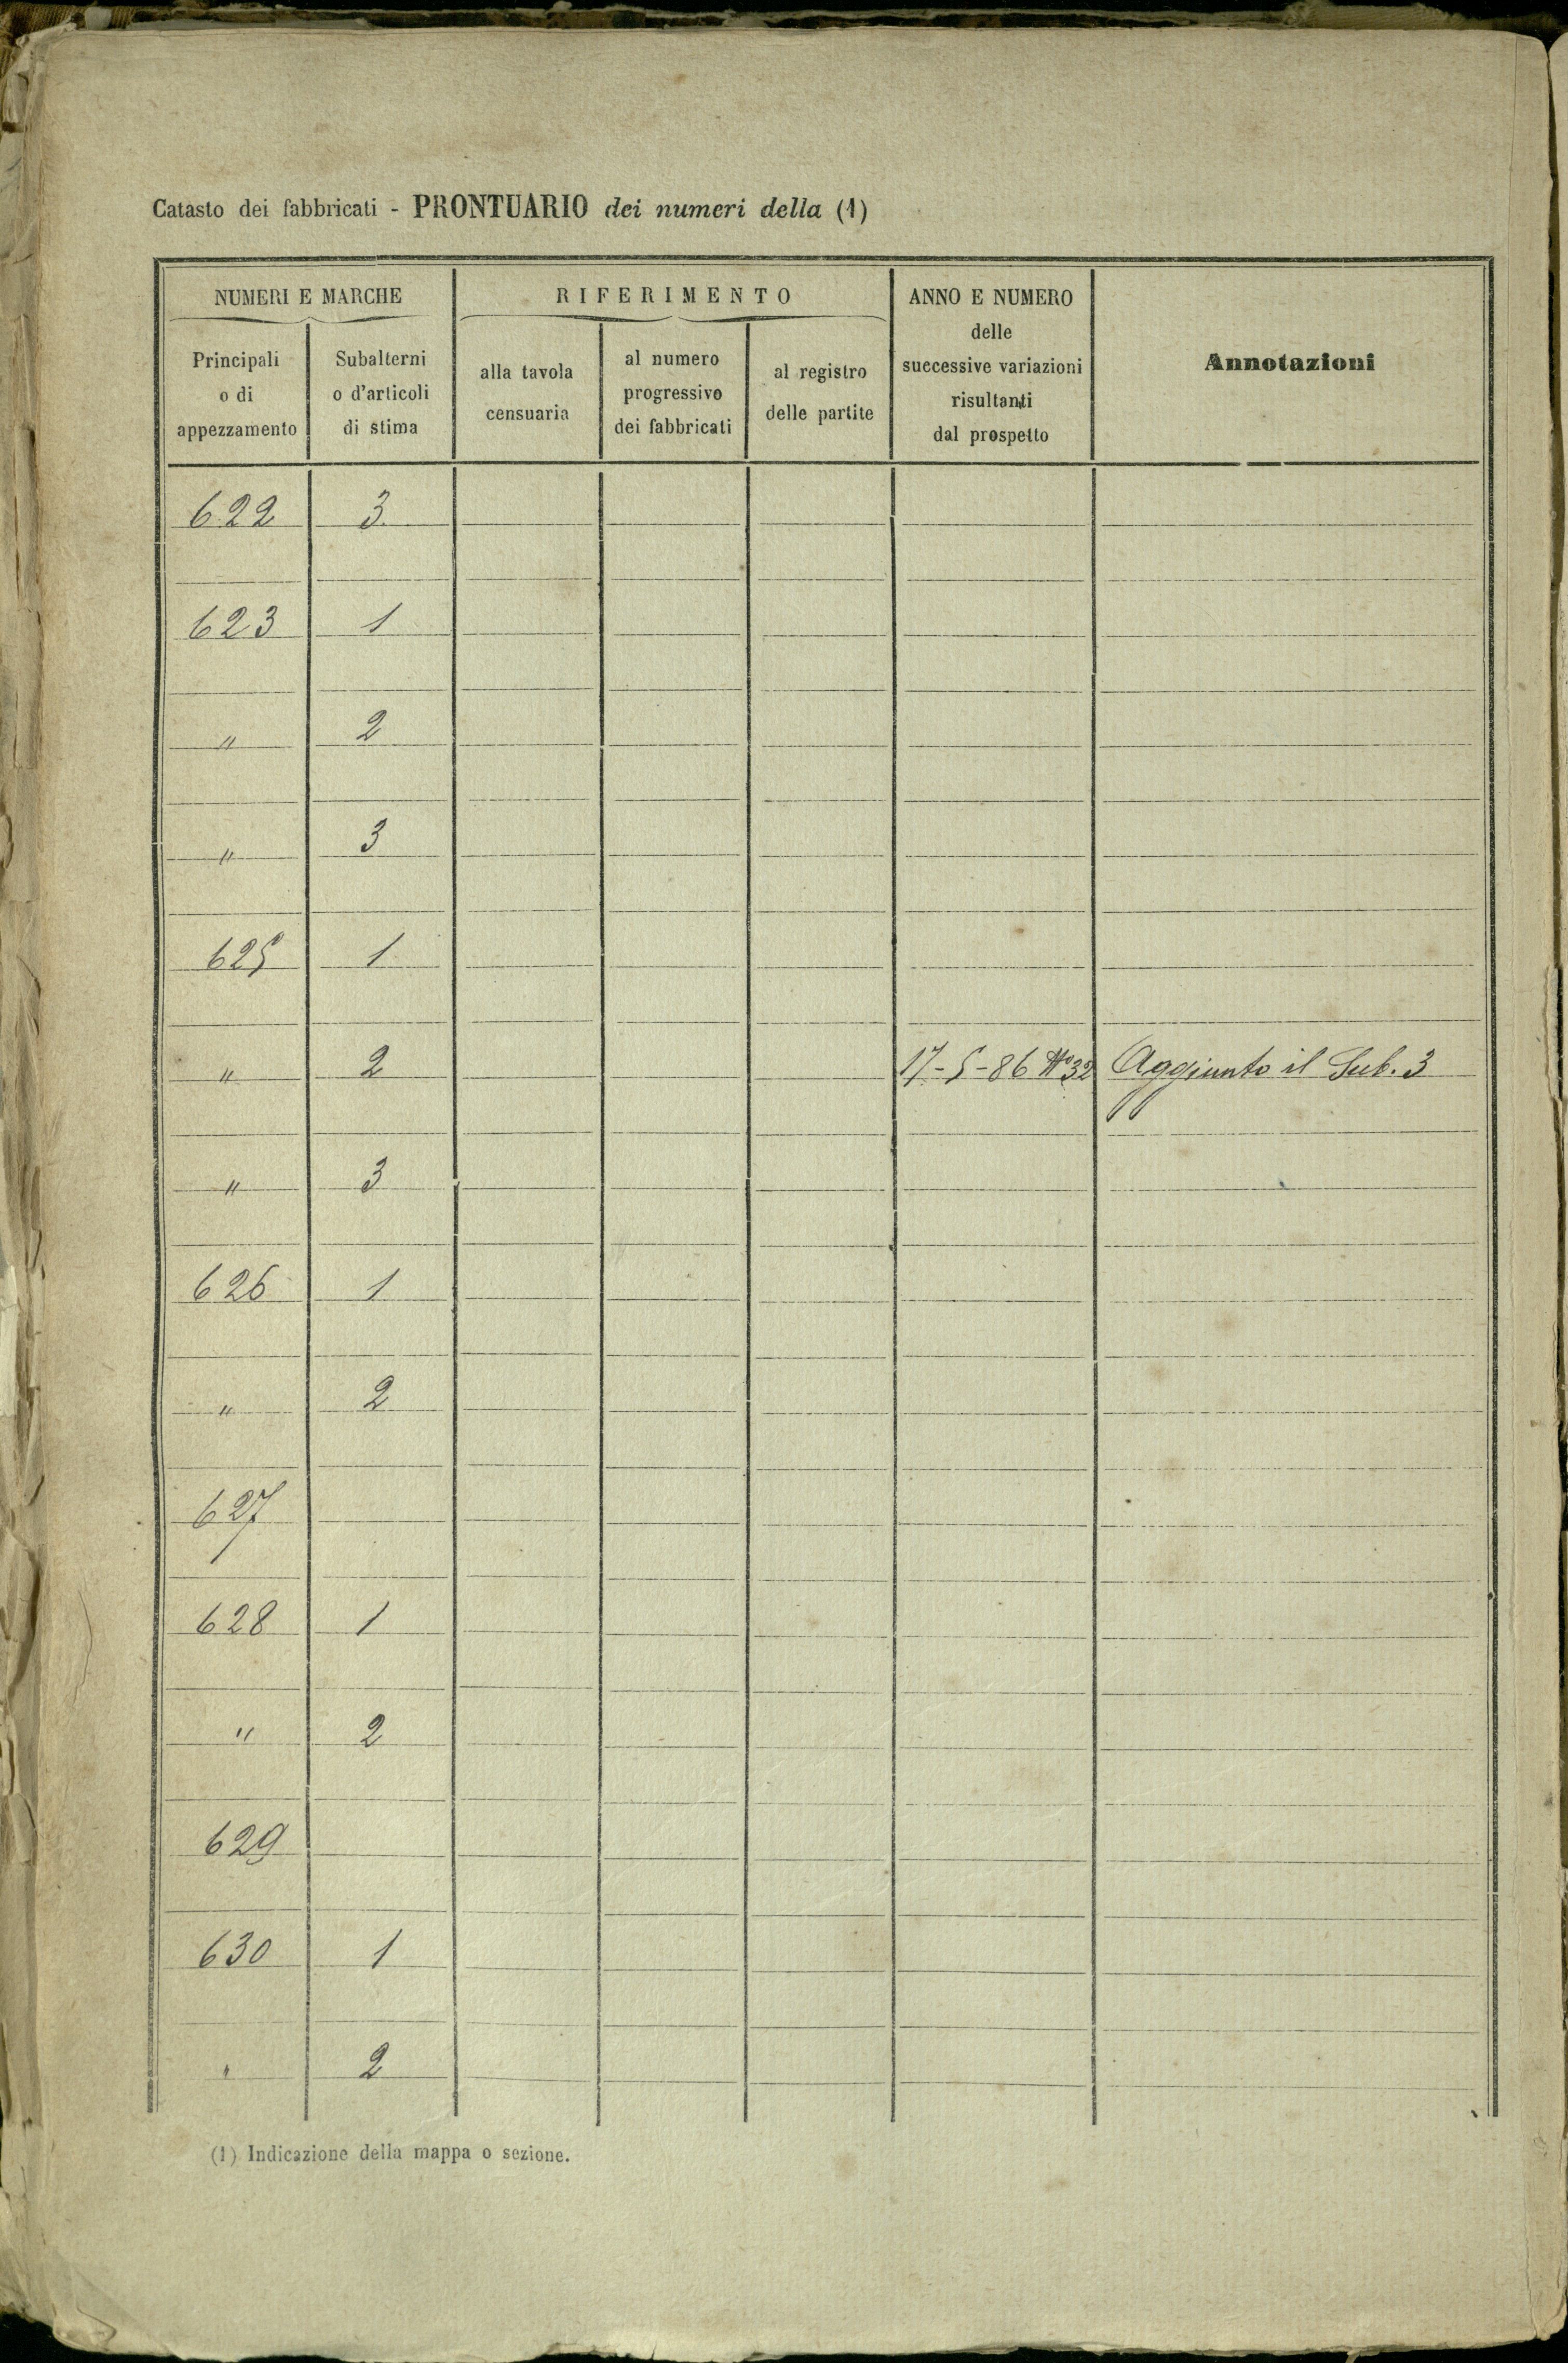 Catasto dei fabbricati - PRONTUARIO dei numeri della (1)
NUMERI E MARCHE
Principali o di appezzamento
Subalterni o d'articoli di stima
RIFERIMENTO
alla tavola censuaria
al numero progressivo dei fabbricati
al registro delle partite
ANNO E NUMERO delle successive variazioni risultanti dal prospetto
Annotazioni
622 3
623 1
" 2
" 3
625 1
" 2 17-5-86 N° 32 Aggiunto il Sub. 3
" 3
626 1
" 2
627
628 1
" 2
629
630 1
" 2
(1) Indicazione della mappa o sezione.